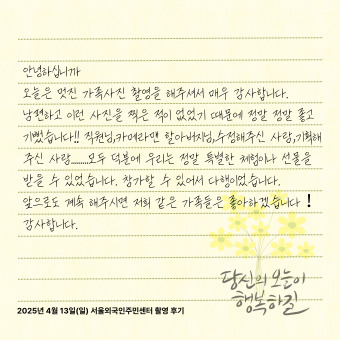 안녕하십니까
오늘은 멋진 가족사진 촬영을 해주셔서 매우 감사합니다.
남편하고 이런 사진을 찍은 적이 없었기 때문에 정말 정말 좋고
기뻤습니다!! 직원님,카메라맨 할아버지님,수정해주신 사람,기획해
주신 사람........모두 덕분에 우리는 정말 특별한 체험이나 선물을
받을 수 있었습니다. 참가할 수 있어서 다행이었습니다.
앞으로도 계속 해주시면 저희 같은 가족들은 좋아하겠습니다 !
감사합니다.
당신의 오늘이
행복하길
2025년 4월 13일(일) 서울외국인주민센터 촬영 후기